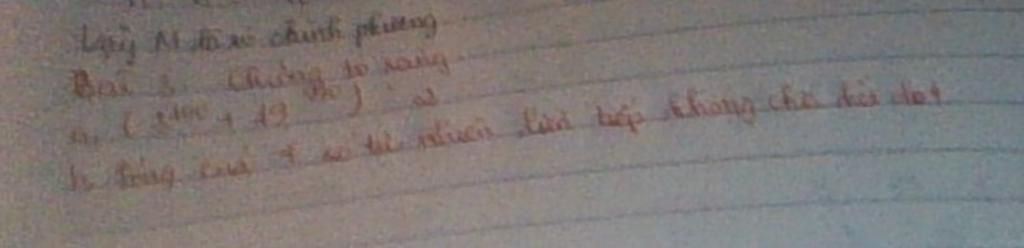 Vậy M là số chính phương
Bài 3. Chứng tỏ rằng
a, (
b, Tổng của 4 số tự nhiên liên tiếp không chia hết cho 4